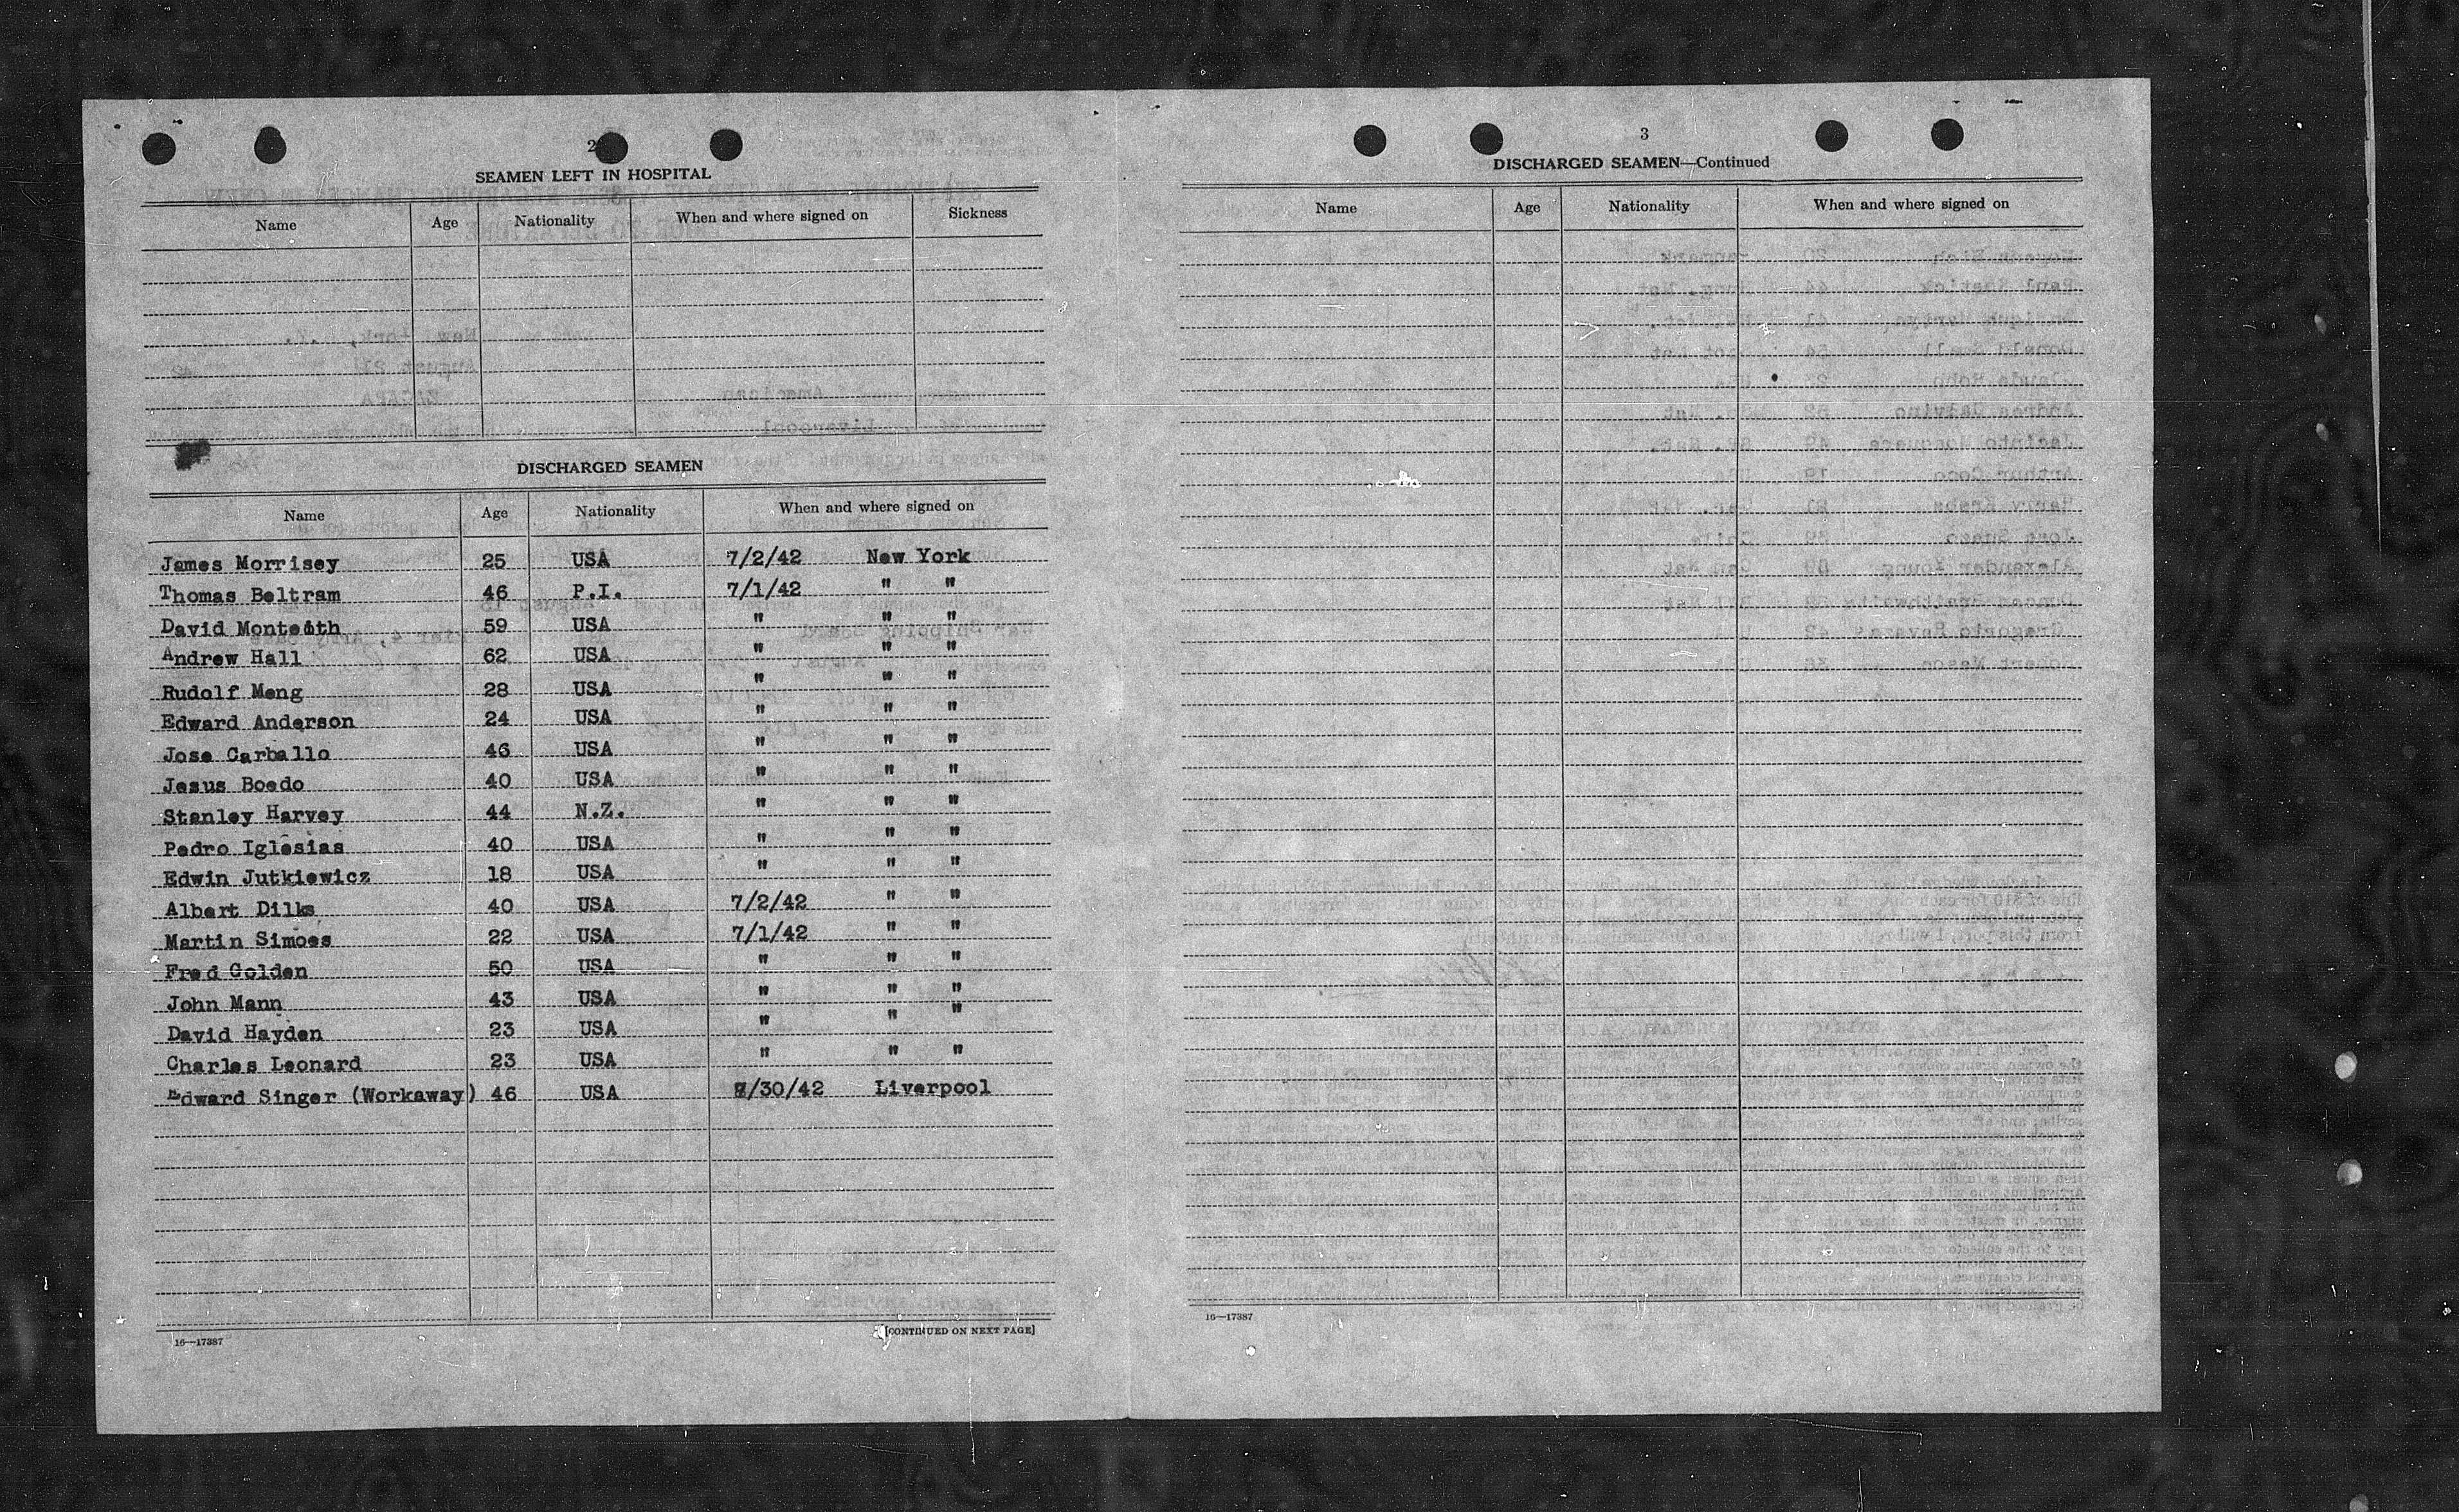 2
SEAMEN LEFT IN HOSPITAL
Name Age Nationality When and where signed on Sickness
DISCHARGED SEAMEN
Name Age Nationality When and where signed on
James Morrisey 25 USA 7/2/42 New York
Thomas Beltram 46 P.I. 7/1/42 " "
David Monteith 59 USA " " "
Andrew Hall 62 USA " " "
Rudolf Meng 28 USA " " "
Edward Anderson 24 USA " " "
Jose Carballo 46 USA " " "
Jesus Boedo 40 USA " " "
Stanley Harvey 44 N.Z. " " "
Pedro Iglesias 40 USA " " "
Edwin Jutkiewicz 18 USA " " "
Albert Dilks 40 USA 7/2/42 " "
Martin Simoes 22 USA 7/1/42 " "
Fred Golden 50 USA " " "
John Mann 43 USA " " "
David Hayden 23 USA " " "
Charles Leonard 23 USA " " "
Edward Singer (Workaway) 46 USA /30/42 Liverpool
16—17387 [CONTINUED ON NEXT PAGE]
3
DISCHARGED SEAMEN—Continued
Name Age Nationality When and where signed on
16—17387